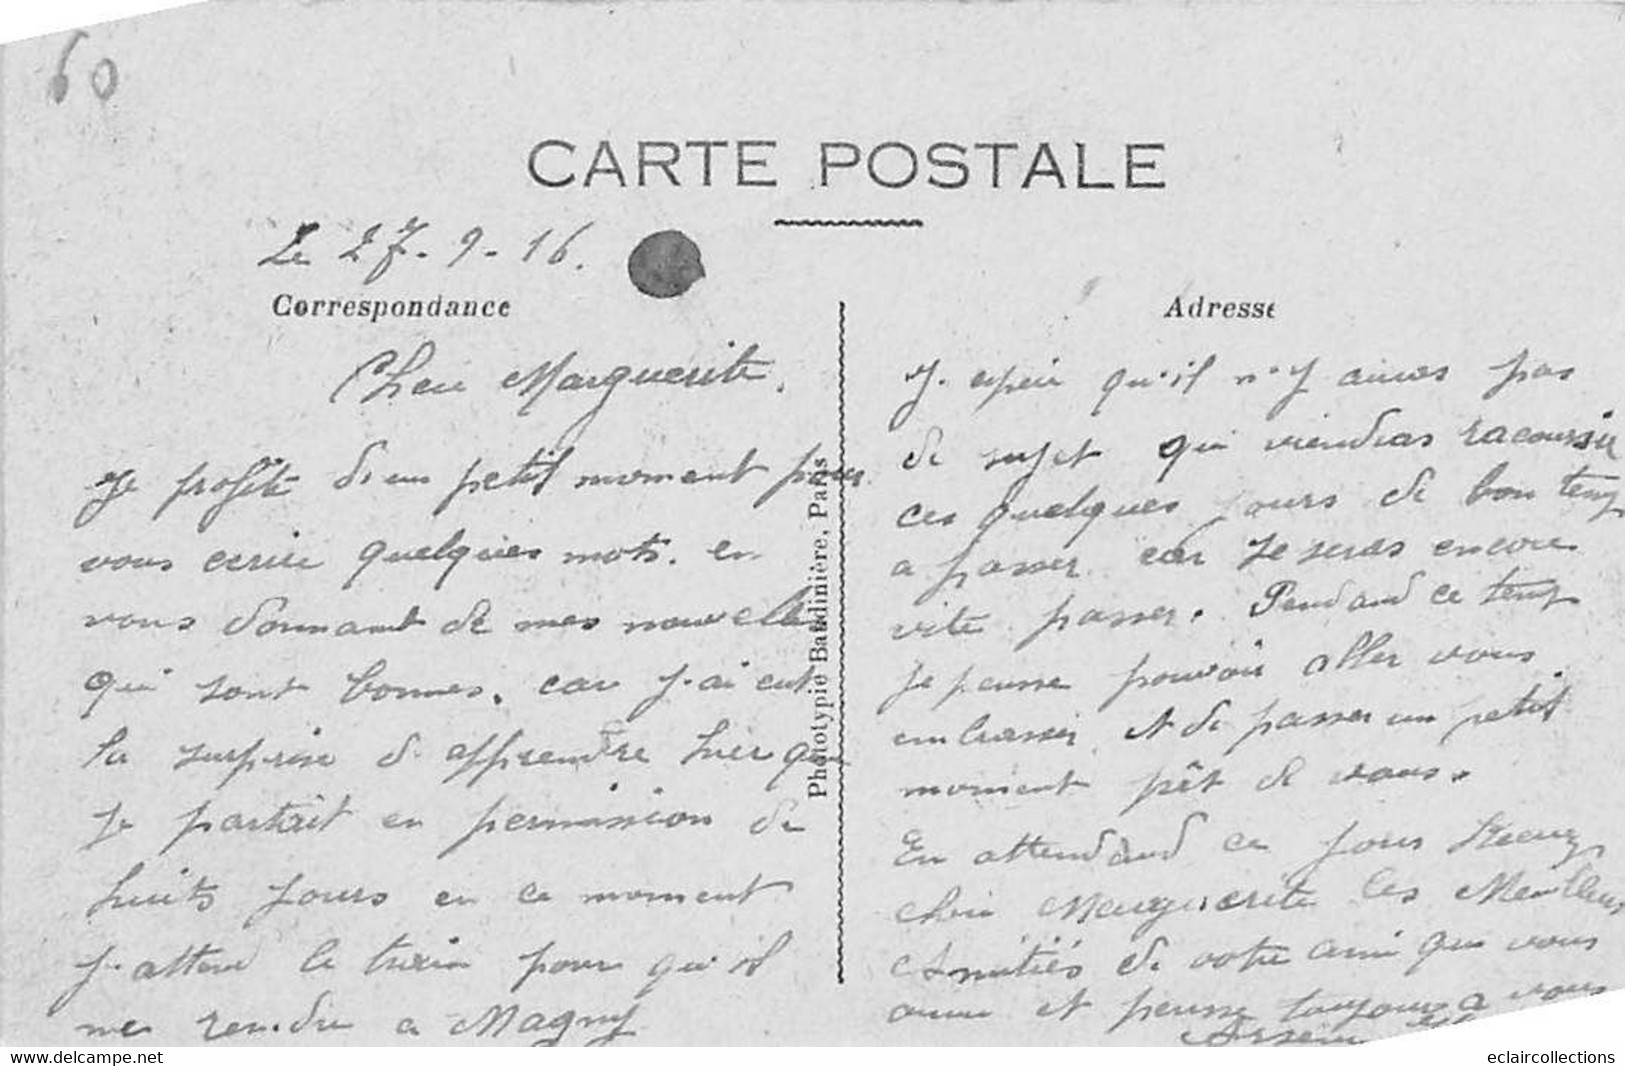 60
CARTE POSTALE
Le 27-9-16.
Correspondance
Cher Marguerite.
Je profite d'un petit moment pour
vous ecrire quelques mots. en
vous donnant de mes nouvelles
qui sont bonnes. car j'ai eut
la surprise d'apprendre hier que
je partait en permission de
huits jours en ce moment
j'attend le train pour qu'il
me rendre a Magny
Phototypie Baudinière, Paris
Adresse
J'espeir qu'il n'y auras pas
de sujet qui viendras racoursir
ces quelques jours de bon temp
a passer car je seras encore
vite passer. Pendand ce temp
je pense pouvoir aller vous
embrasser et de passer un petit
moment pêt de vous.
En attendand ce jour heureux
cher Marguerite les Meilleurs
Amitiés de votre ami que vous
aime et pense toujours a vous
Arsène
eclaircollections